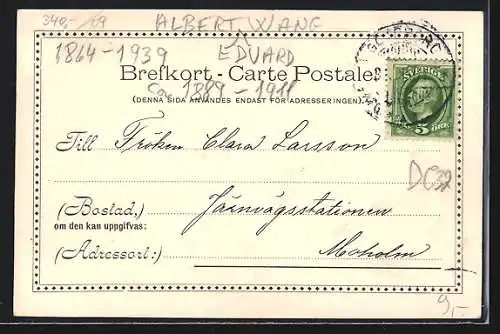 340,- /69 ALBERT WANG
1864-1939 EDVARD
Brefkort - Carte Postale
1889-1911
(DENNA SIDA ANVÄNDES ENDAST FÖR ADRESSERINGEN)
SVERIGE
5 ÖRE
Till Fröken Clara Larsson
DC32
(Bostad,) Järnvägsstationen
om den kan uppgifvas:
(Adressort:) Moholm
9,-